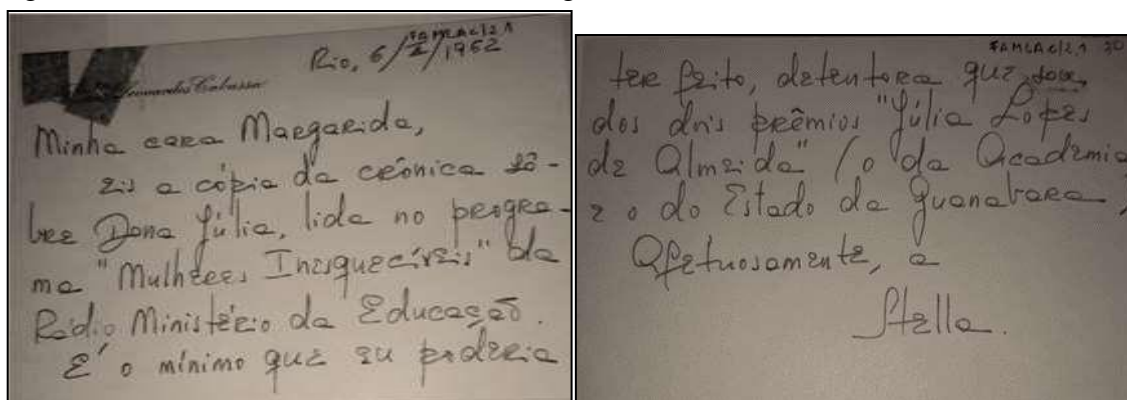 FAMLAC/2.1
Rio, 6/2/1962
Fernandes Cabassa
Minha cara Margarida,
eis a cópia da crônica sô-
bre Dona Júlia, lida no progra-
ma "Mulheres Inesquecíveis" da
Rádio Ministério da Educação.
É o mínimo que eu poderia
FAMLAC/2.1 30
ter feito, detentora que sou,
dos dois prêmios "Júlia Lopes
de Almeida" (o da Academia
e o do Estado da Guanabara,
Afetuosamente, a
Stella.